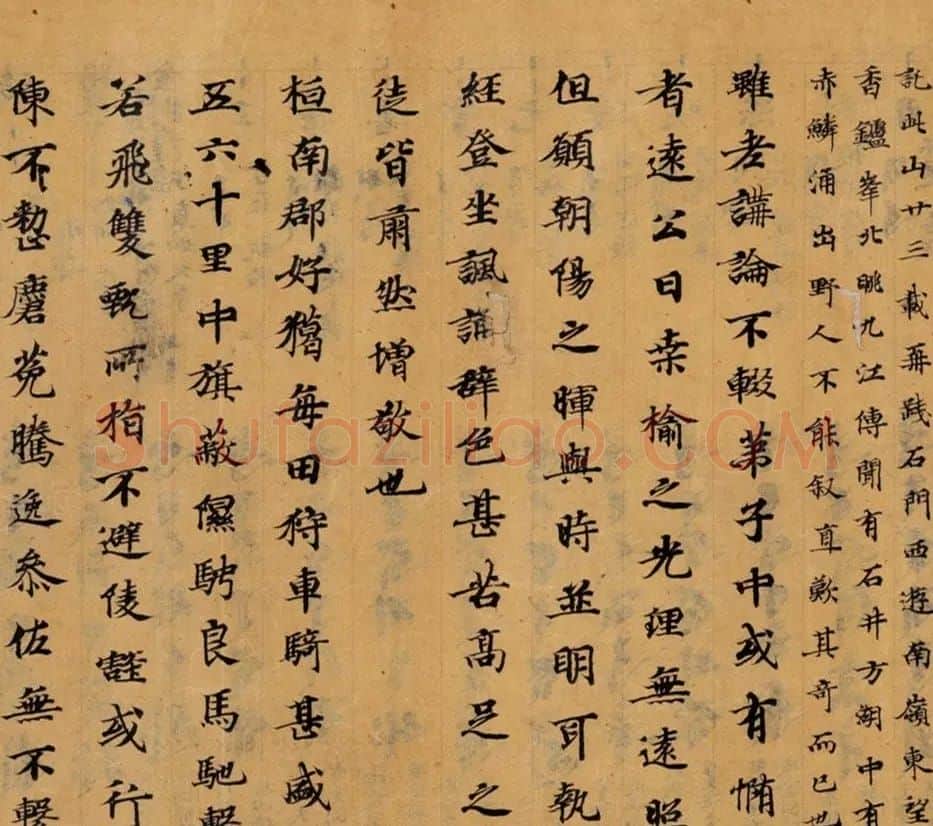 託此山廿三載再踐石門西遊南嶺東望
香鑪峯北眺九江傳聞有石井方湖中有
赤鱗涌出野人不能叙直歎其奇而已也
雖老講論不輟弟子中或有惰
者遠公曰桒榆之光理無遠照
但願朝陽之暉與時並明耳執
經登坐諷誦辞色甚苦高足之
徒皆肅然增敬也
桓南郡好獵每田狩車騎甚盛
五六十里中旗蔽隰騁良馬馳擊
若飛雙甄所指不避陵壑或行
陳不整麏菟騰逸叅佐無不繫
Shufaziliao.COM